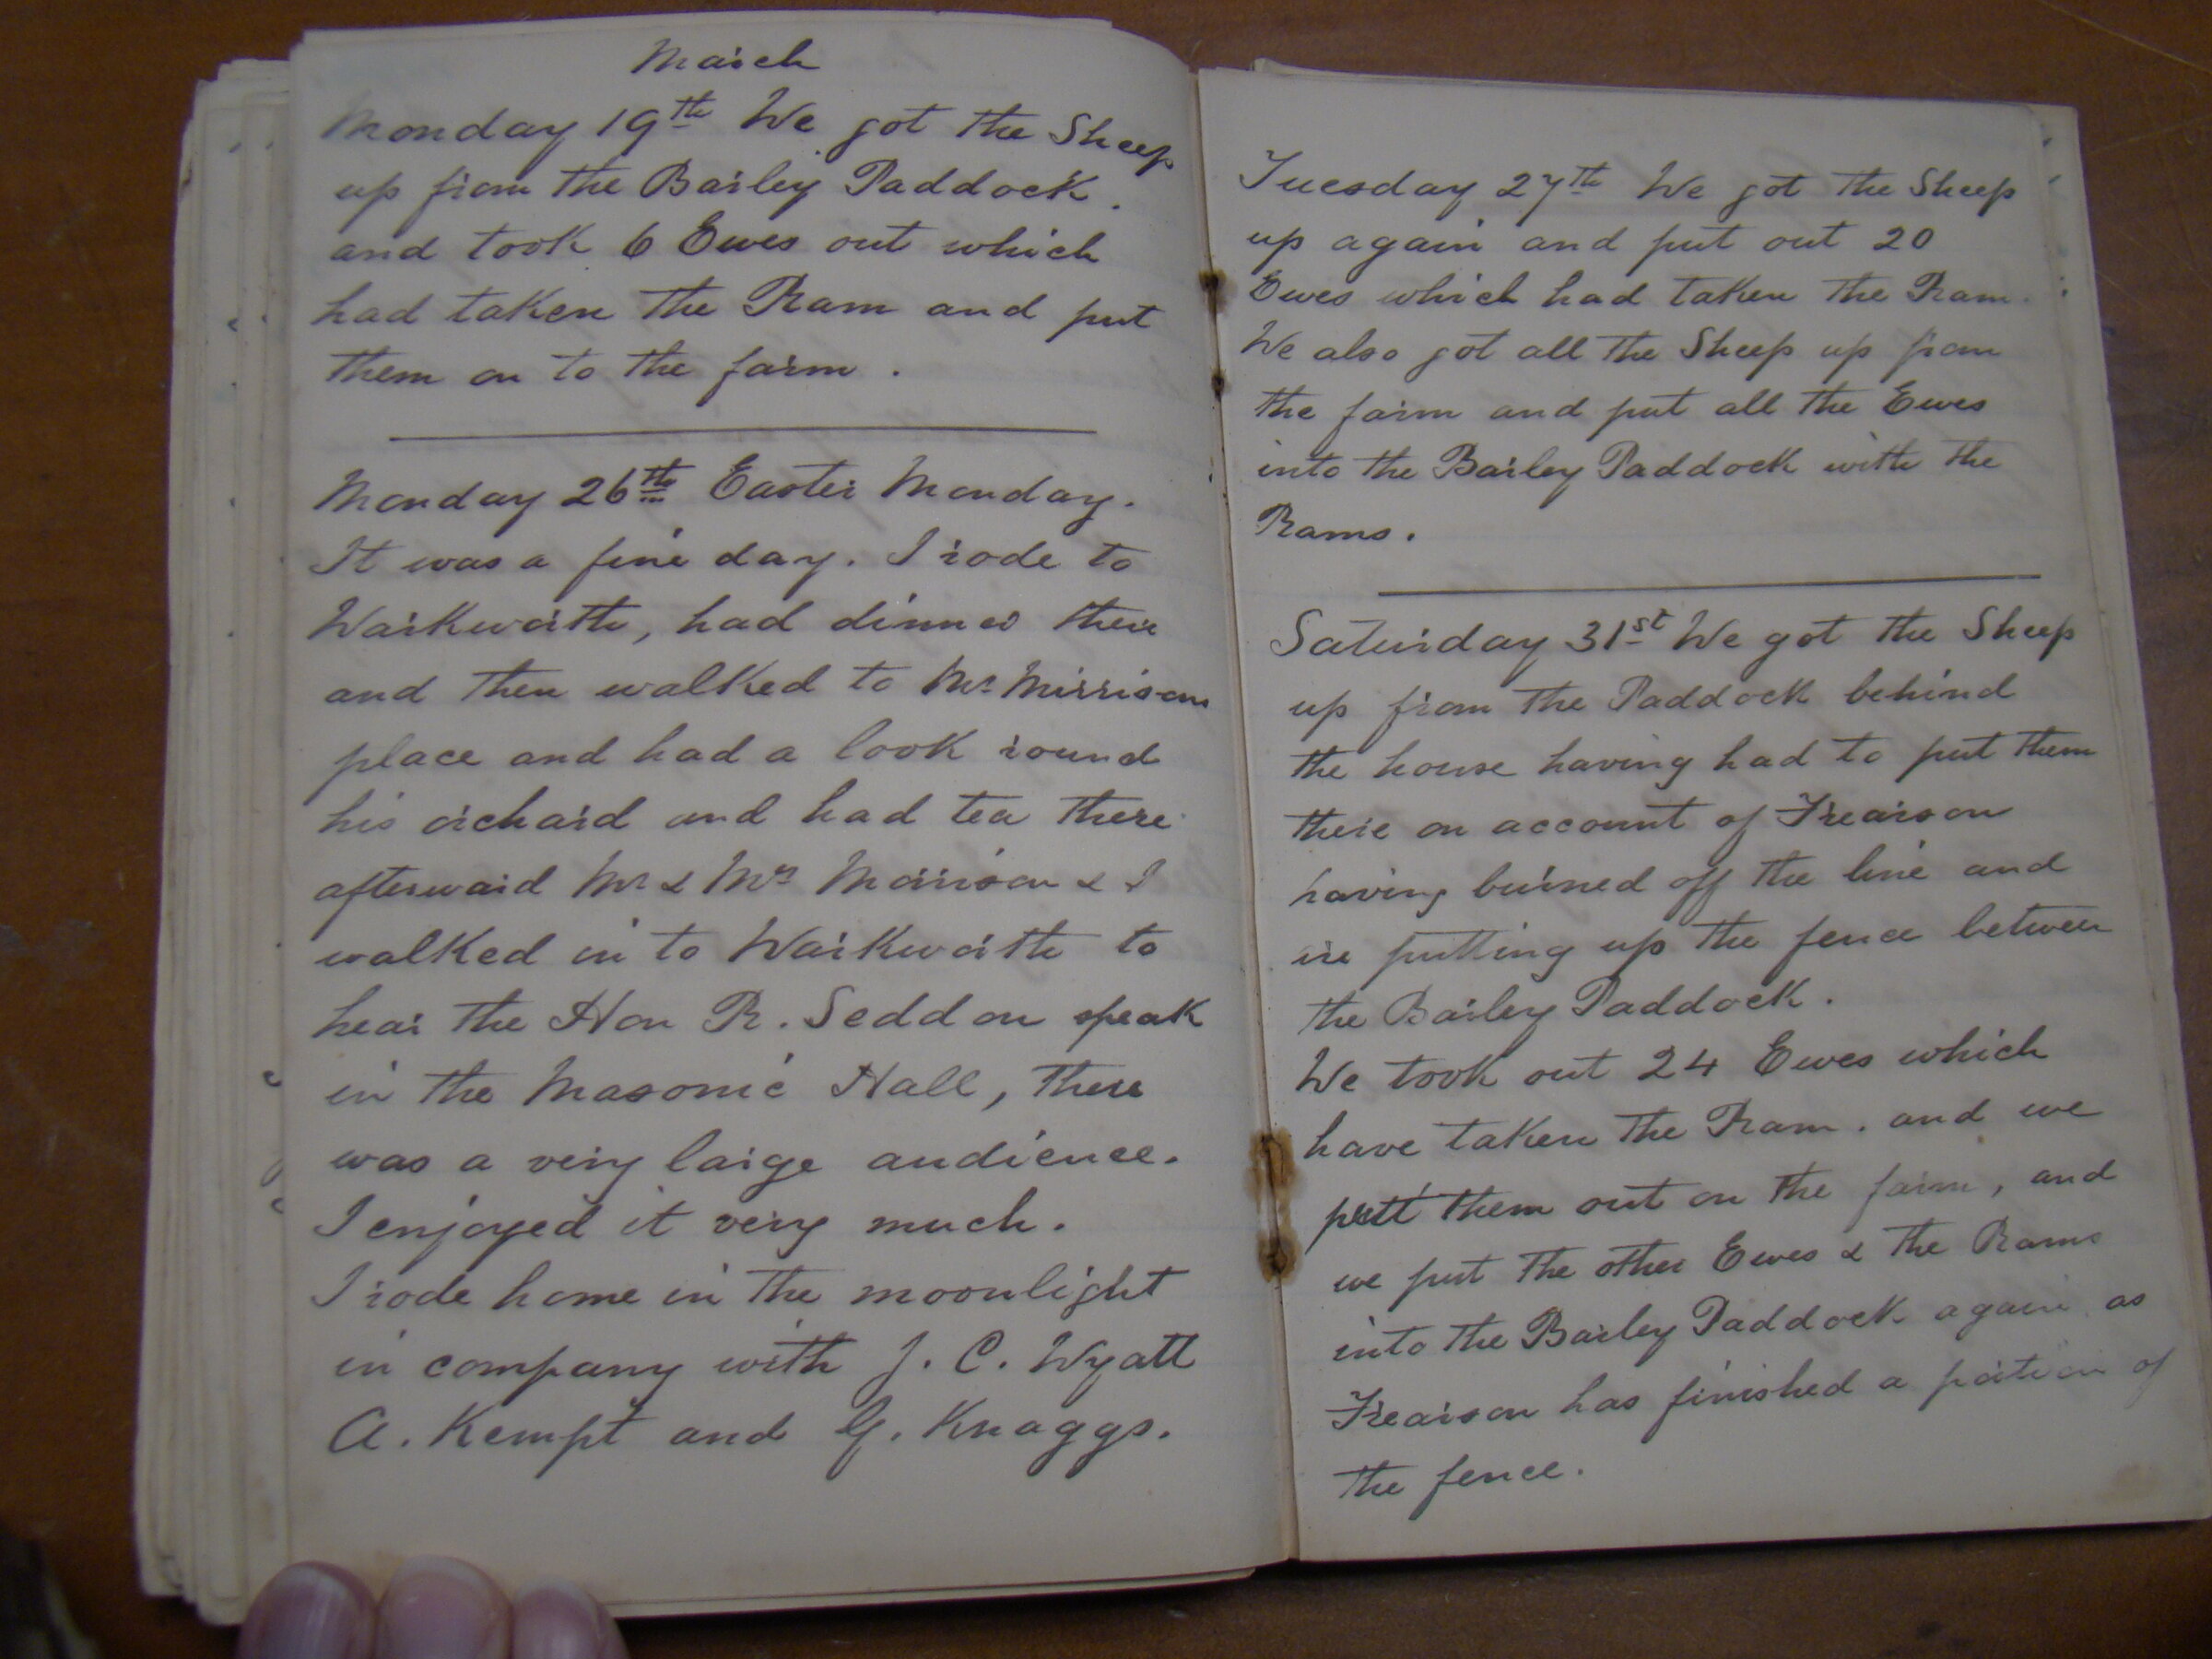 March
Monday 19th We got the Sheep
up from the Barley Paddock.
and took 6 Ewes out which
had taken the Ram and put
them on to the farm.
Monday 26th Easter Monday.
It was a fine day. I rode to
Warkworth, had dinner there
and then walked to Mr Mirrisons
place and had a look round
his orchard and had tea there
afterward Mr & Mrs Morrison & I
walked in to Warkworth to
hear the Hon R. Seddon speak
in the Masonic Hall, there
was a very large audience.
I enjoyed it very much.
I rode home in the moonlight
in company with J. C. Wyatt
A. Kempt and G. Knaggs.
Tuesday 27th We got the Sheep
up again and put out 20
Ewes which had taken the Ram.
We also got all the Sheep up from
the farm and put all the Ewes
into the Barley Paddock with the
Rams.
Saturday 31st We got the Sheep
up from the Paddock behind
the house having had to put them
there on account of Frearson
having burned off the line and
putting up the fence between
the Barley Paddock.
We took out 24 Ewes which
have taken the Ram. and we
putt them out on the farm, and
we put the other Ewes & the Rams
into the Barley Paddock again as
Frearson has finished a portion of
the fence.